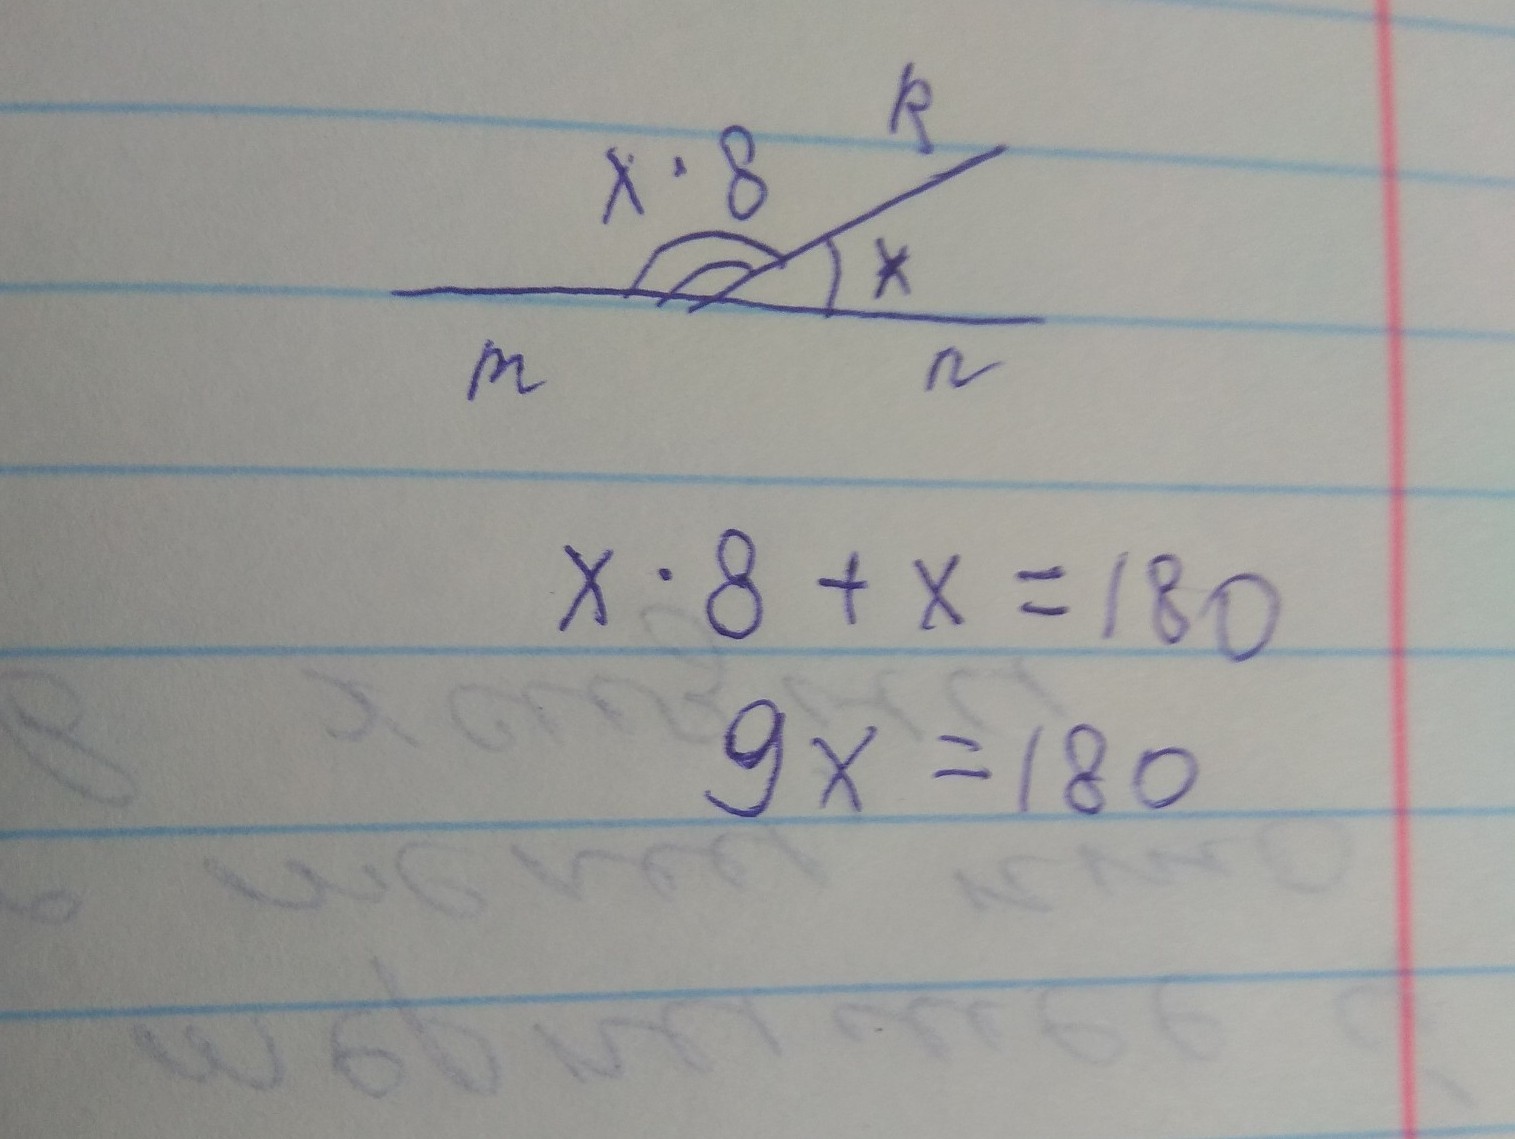 k
x · 8
x
m n
x · 8 + x = 180
9x = 180